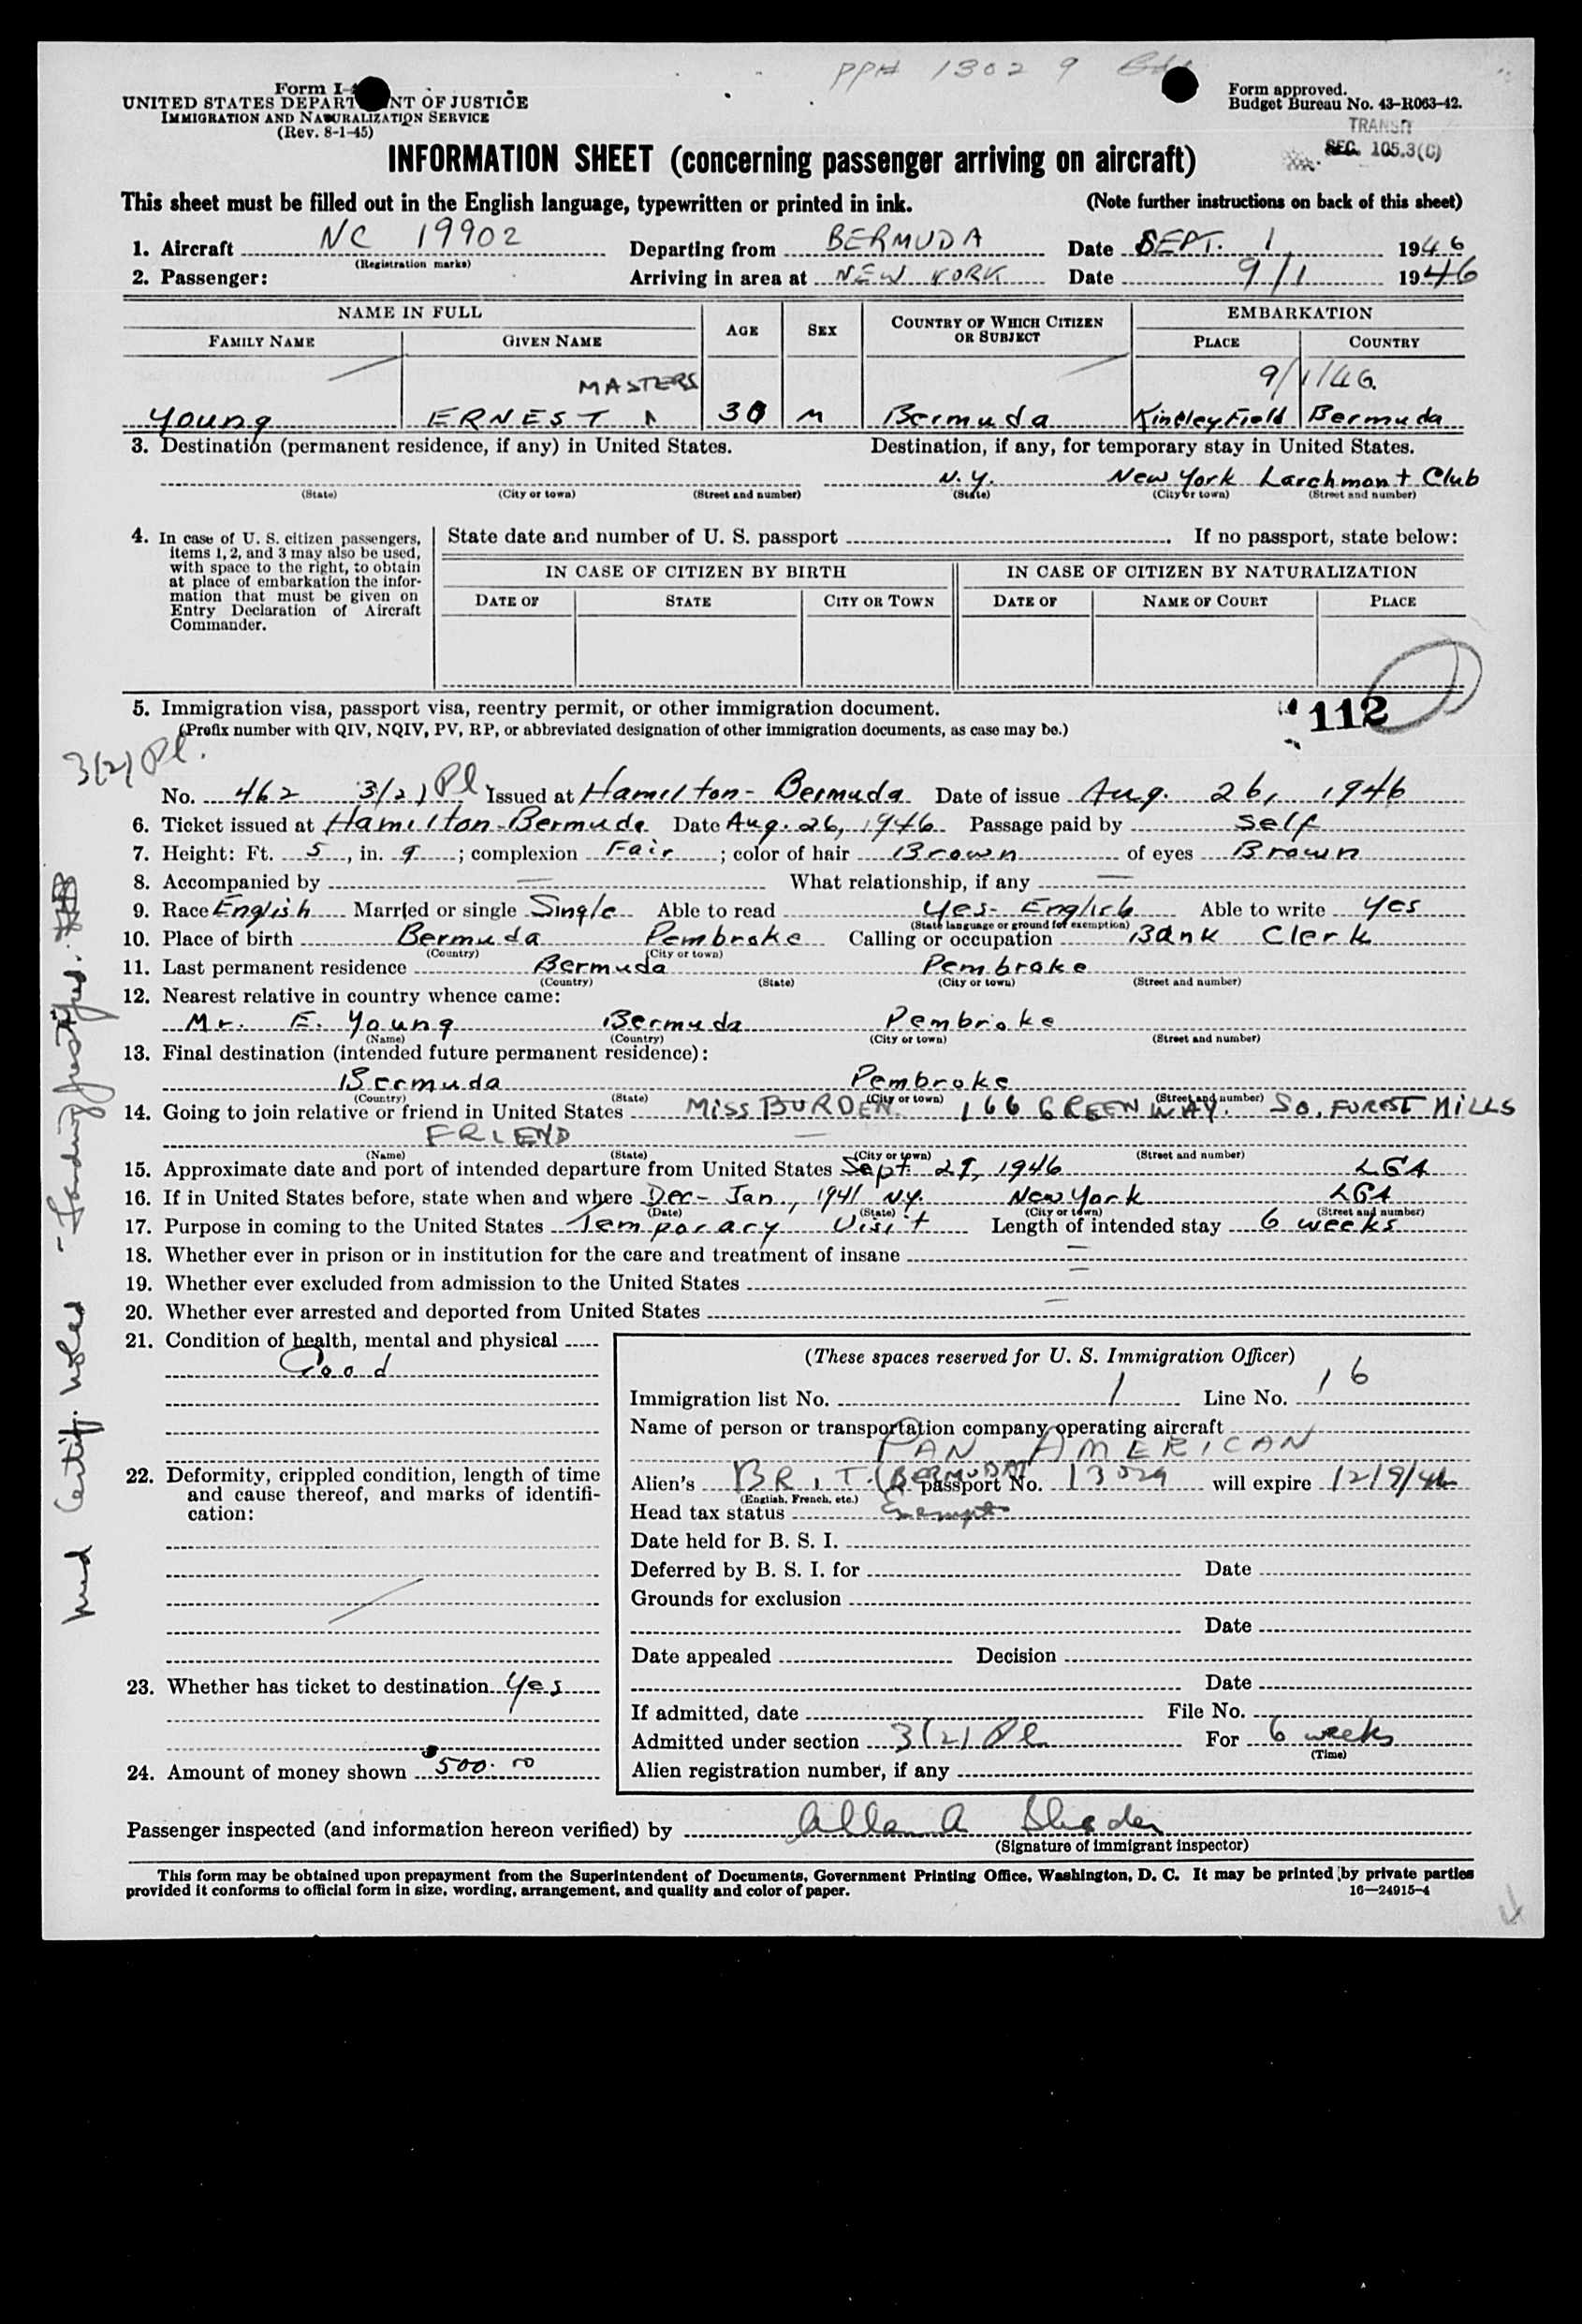 PP# 13029
Form I-
UNITED STATES DEPARTMENT OF JUSTICE
IMMIGRATION AND NATURALIZATION SERVICE
(Rev. 8-1-45)
Form approved.
Budget Bureau No. 43-R063-42.
TRANSIT
SEC. 105.3(C)
INFORMATION SHEET (concerning passenger arriving on aircraft)
This sheet must be filled out in the English language, typewritten or printed in ink. (Note further instructions on back of this sheet)
1. Aircraft NC 19902 Departing from BERMUDA Date SEPT. 1 1946
(Registration marks)
2. Passenger: Arriving in area at NEW YORK Date 9/1 1946
NAME IN FULL AGE SEX COUNTRY OF WHICH CITIZEN OR SUBJECT EMBARKATION
FAMILY NAME GIVEN NAME PLACE COUNTRY
MASTERS 9/1/46.
Young ERNEST 30 M Bermuda Kindley Field Bermuda
3. Destination (permanent residence, if any) in United States. Destination, if any, for temporary stay in United States.
N.Y. New York Larchmont Club
(State) (City or town) (Street and number) (State) (City or town) (Street and number)
4. In case of U. S. citizen passengers, items 1, 2, and 3 may also be used, with space to the right, to obtain at place of embarkation the information that must be given on Entry Declaration of Aircraft Commander.
State date and number of U. S. passport If no passport, state below:
IN CASE OF CITIZEN BY BIRTH IN CASE OF CITIZEN BY NATURALIZATION
DATE OF STATE CITY OR TOWN DATE OF NAME OF COURT PLACE
5. Immigration visa, passport visa, reentry permit, or other immigration document. 112
(Prefix number with QIV, NQIV, PV, RP, or abbreviated designation of other immigration documents, as case may be.)
3(2) Pl.
No. 462 3(2) Pl Issued at Hamilton - Bermuda Date of issue Aug. 26, 1946
6. Ticket issued at Hamilton-Bermuda Date Aug. 26, 1946 Passage paid by Self
7. Height: Ft. 5, in. 9; complexion Fair; color of hair Brown of eyes Brown
8. Accompanied by — What relationship, if any —
9. Race English Married or single Single Able to read Yes - English Able to write Yes
(State language or ground for exemption)
10. Place of birth Bermuda Pembroke Calling or occupation Bank Clerk
(Country) (City or town)
11. Last permanent residence Bermuda Pembroke
(Country) (State) (City or town) (Street and number)
12. Nearest relative in country whence came:
Mr. E. Young Bermuda Pembroke
(Name) (Country) (City or town) (Street and number)
13. Final destination (intended future permanent residence):
Bermuda Pembroke
(Country) (State) (City or town) (Street and number)
14. Going to join relative or friend in United States MISS BURDEN. 166 GREENWAY. SO. FOREST HILLS
FRIEND —
(Name) (State) (City or town) (Street and number)
15. Approximate date and port of intended departure from United States Sept 29, 1946 LGA
16. If in United States before, state when and where Dec - Jan., 1941 N.Y. New York LGA
(Date) (State) (City or town) (Street and number)
17. Purpose in coming to the United States Temporary Visit Length of intended stay 6 weeks
18. Whether ever in prison or in institution for the care and treatment of insane —
19. Whether ever excluded from admission to the United States —
20. Whether ever arrested and deported from United States —
21. Condition of health, mental and physical
Good
22. Deformity, crippled condition, length of time and cause thereof, and marks of identification:
23. Whether has ticket to destination Yes
24. Amount of money shown $500.00
(These spaces reserved for U. S. Immigration Officer)
Immigration list No. 1 Line No. 16
Name of person or transportation company operating aircraft
PAN AMERICAN
Alien's BRIT. (BERMUDA) passport No. 13029 will expire 12/9/46
(English, French, etc.)
Head tax status Exempt
Date held for B. S. I.
Deferred by B. S. I. for Date
Grounds for exclusion
Date
Date appealed Decision
Date
If admitted, date File No.
Admitted under section 3(2) Pl For 6 weeks
(Time)
Alien registration number, if any
Passenger inspected (and information hereon verified) by Allen A
(Signature of immigrant inspector)
This form may be obtained upon prepayment from the Superintendent of Documents, Government Printing Office, Washington, D. C. It may be printed by private parties
provided it conforms to official form in size, wording, arrangement, and quality and color of paper. 16—24915-4
Med Certif.